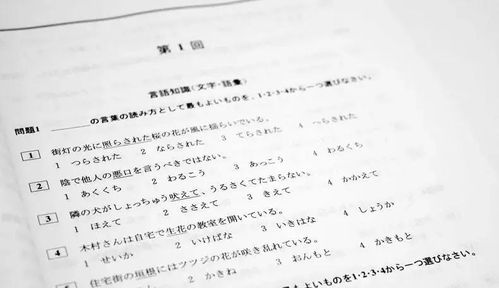 第1回
言語知識(文字・語彙)
問題1 ＿＿＿の言葉の読み方として最もよいものを、1・2・3・4から一つ選びなさい。
1 街灯の光に照らされた桜の花が風に揺らいでいる。
1 つらされた 2 ならされた 3 てらされた 4 へらされた
2 陰で他人の悪口を言うべきではない。
1 あくくち 2 わるこう 3 あっこう 4 わるくち
3 隣の犬がしょっちゅう吠えて、うるさくてたまらない。
1 ほえて 2 ささえて 3 きえて 4 かかえて
4 木村さんは自宅で生花の教室を開いている。
1 せいか 2 いけばな 3 いきはな 4 しょうか
5 住宅街の垣根にはツツジの花が咲き乱れている。
2 かきね 3 おんもと 4 かきもと
の言葉の読み方として最もよいものを1・2・3・4から一つ選びなさい。